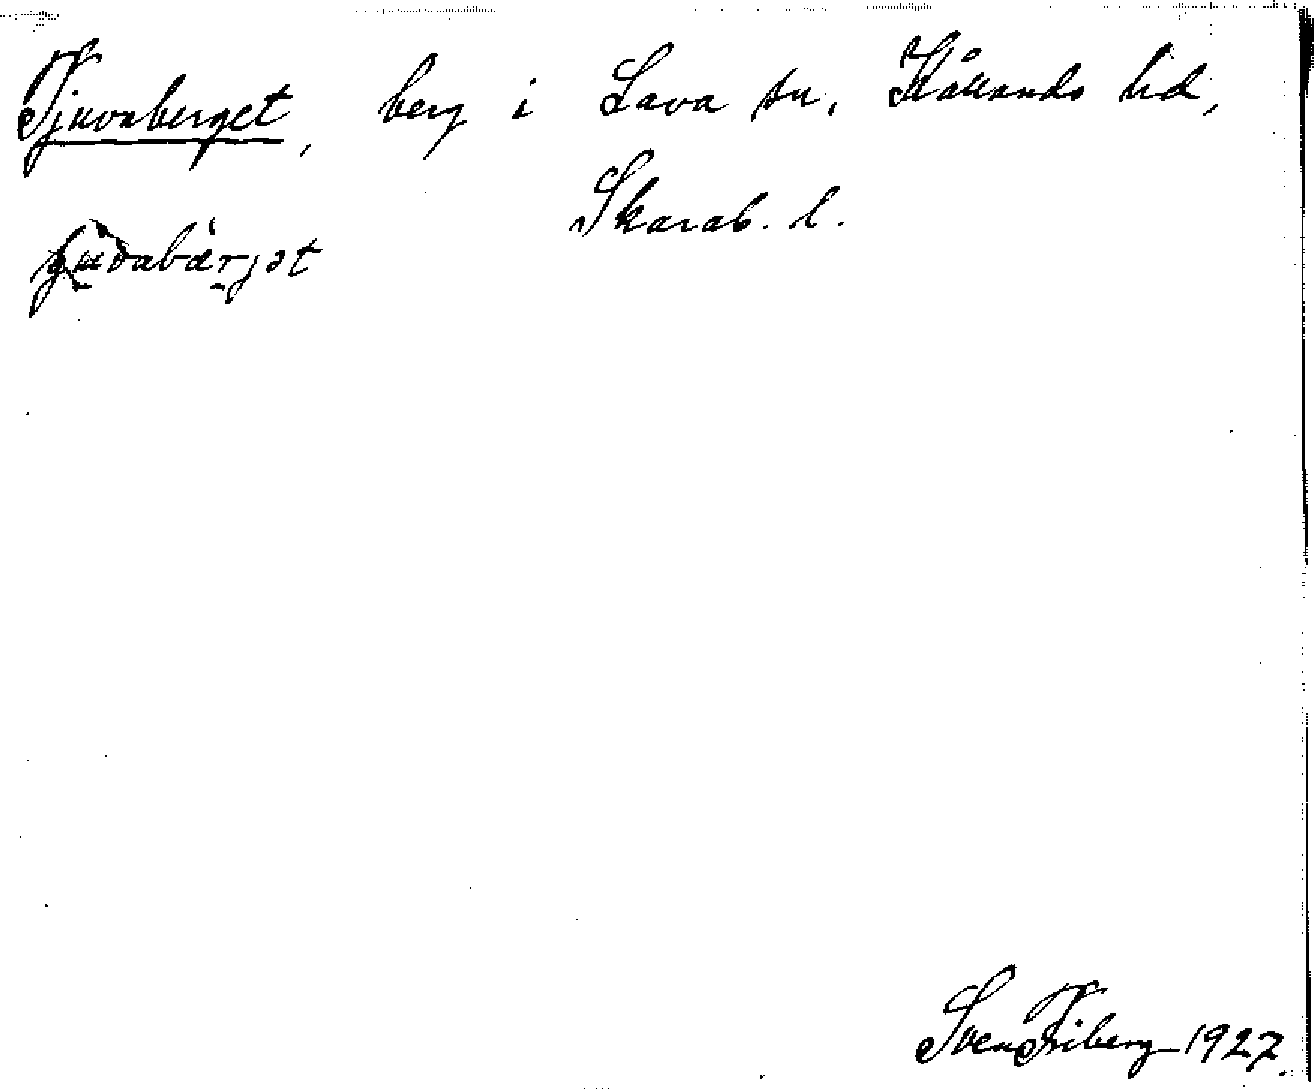 Tjuvaberget, berg i Lava sn. Kållands hd,
Skarab. l.
Sven Friberg 1927